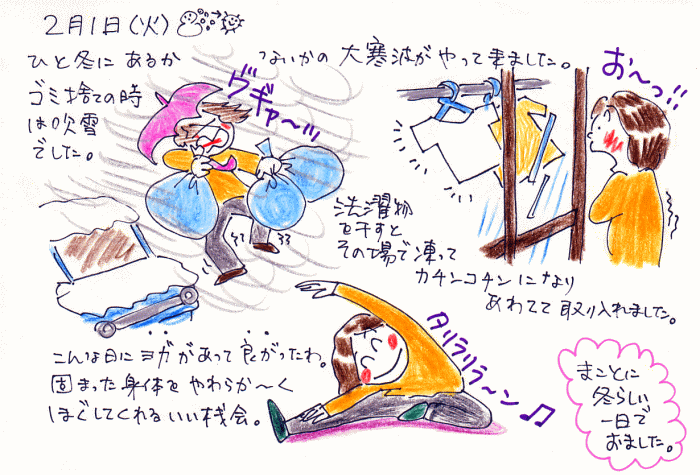 2月1日(火)
ひと冬にあるか ないかの 大寒波がやって来ました。
ゴミ捨ての時
は吹雪
でした。
ヴギャ〜ッ
お〜っ!!
洗濯物
を干すと
その場で凍って
カチンコチンになり
あわてて取り入れました。
こんな日にヨガがあって良がったわ。
固まった身体をやわらか〜く
ほぐしてくれるいい機会。
タリラリラ〜ン♫
まことに
冬らしい
一日で
おました。